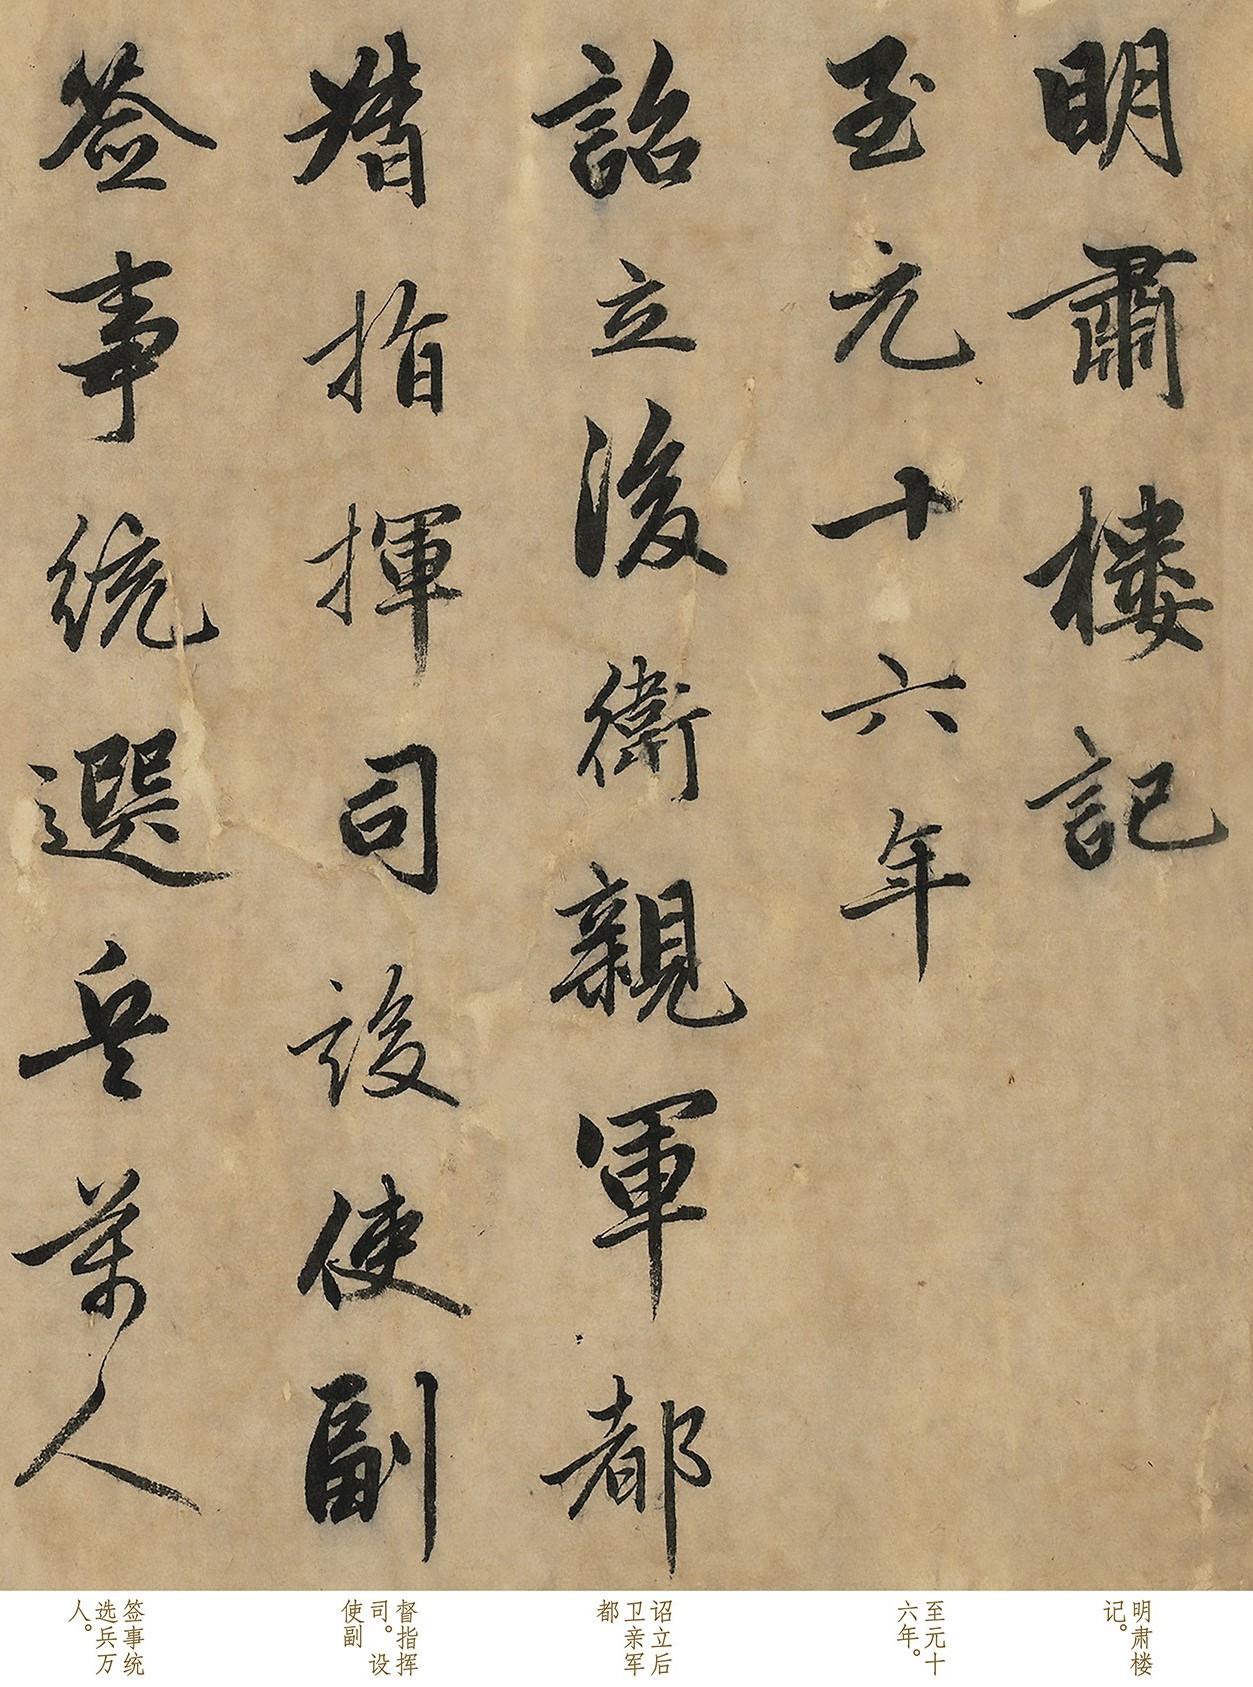 明肅樓記
至元十六年
詔立後衛親軍都
督指揮司設使副
签事統選兵萬人
明肃楼
记。
至元十
六年。
诏立后
卫亲军
都
督指挥
司。设
使副
签事统
选兵万
人。